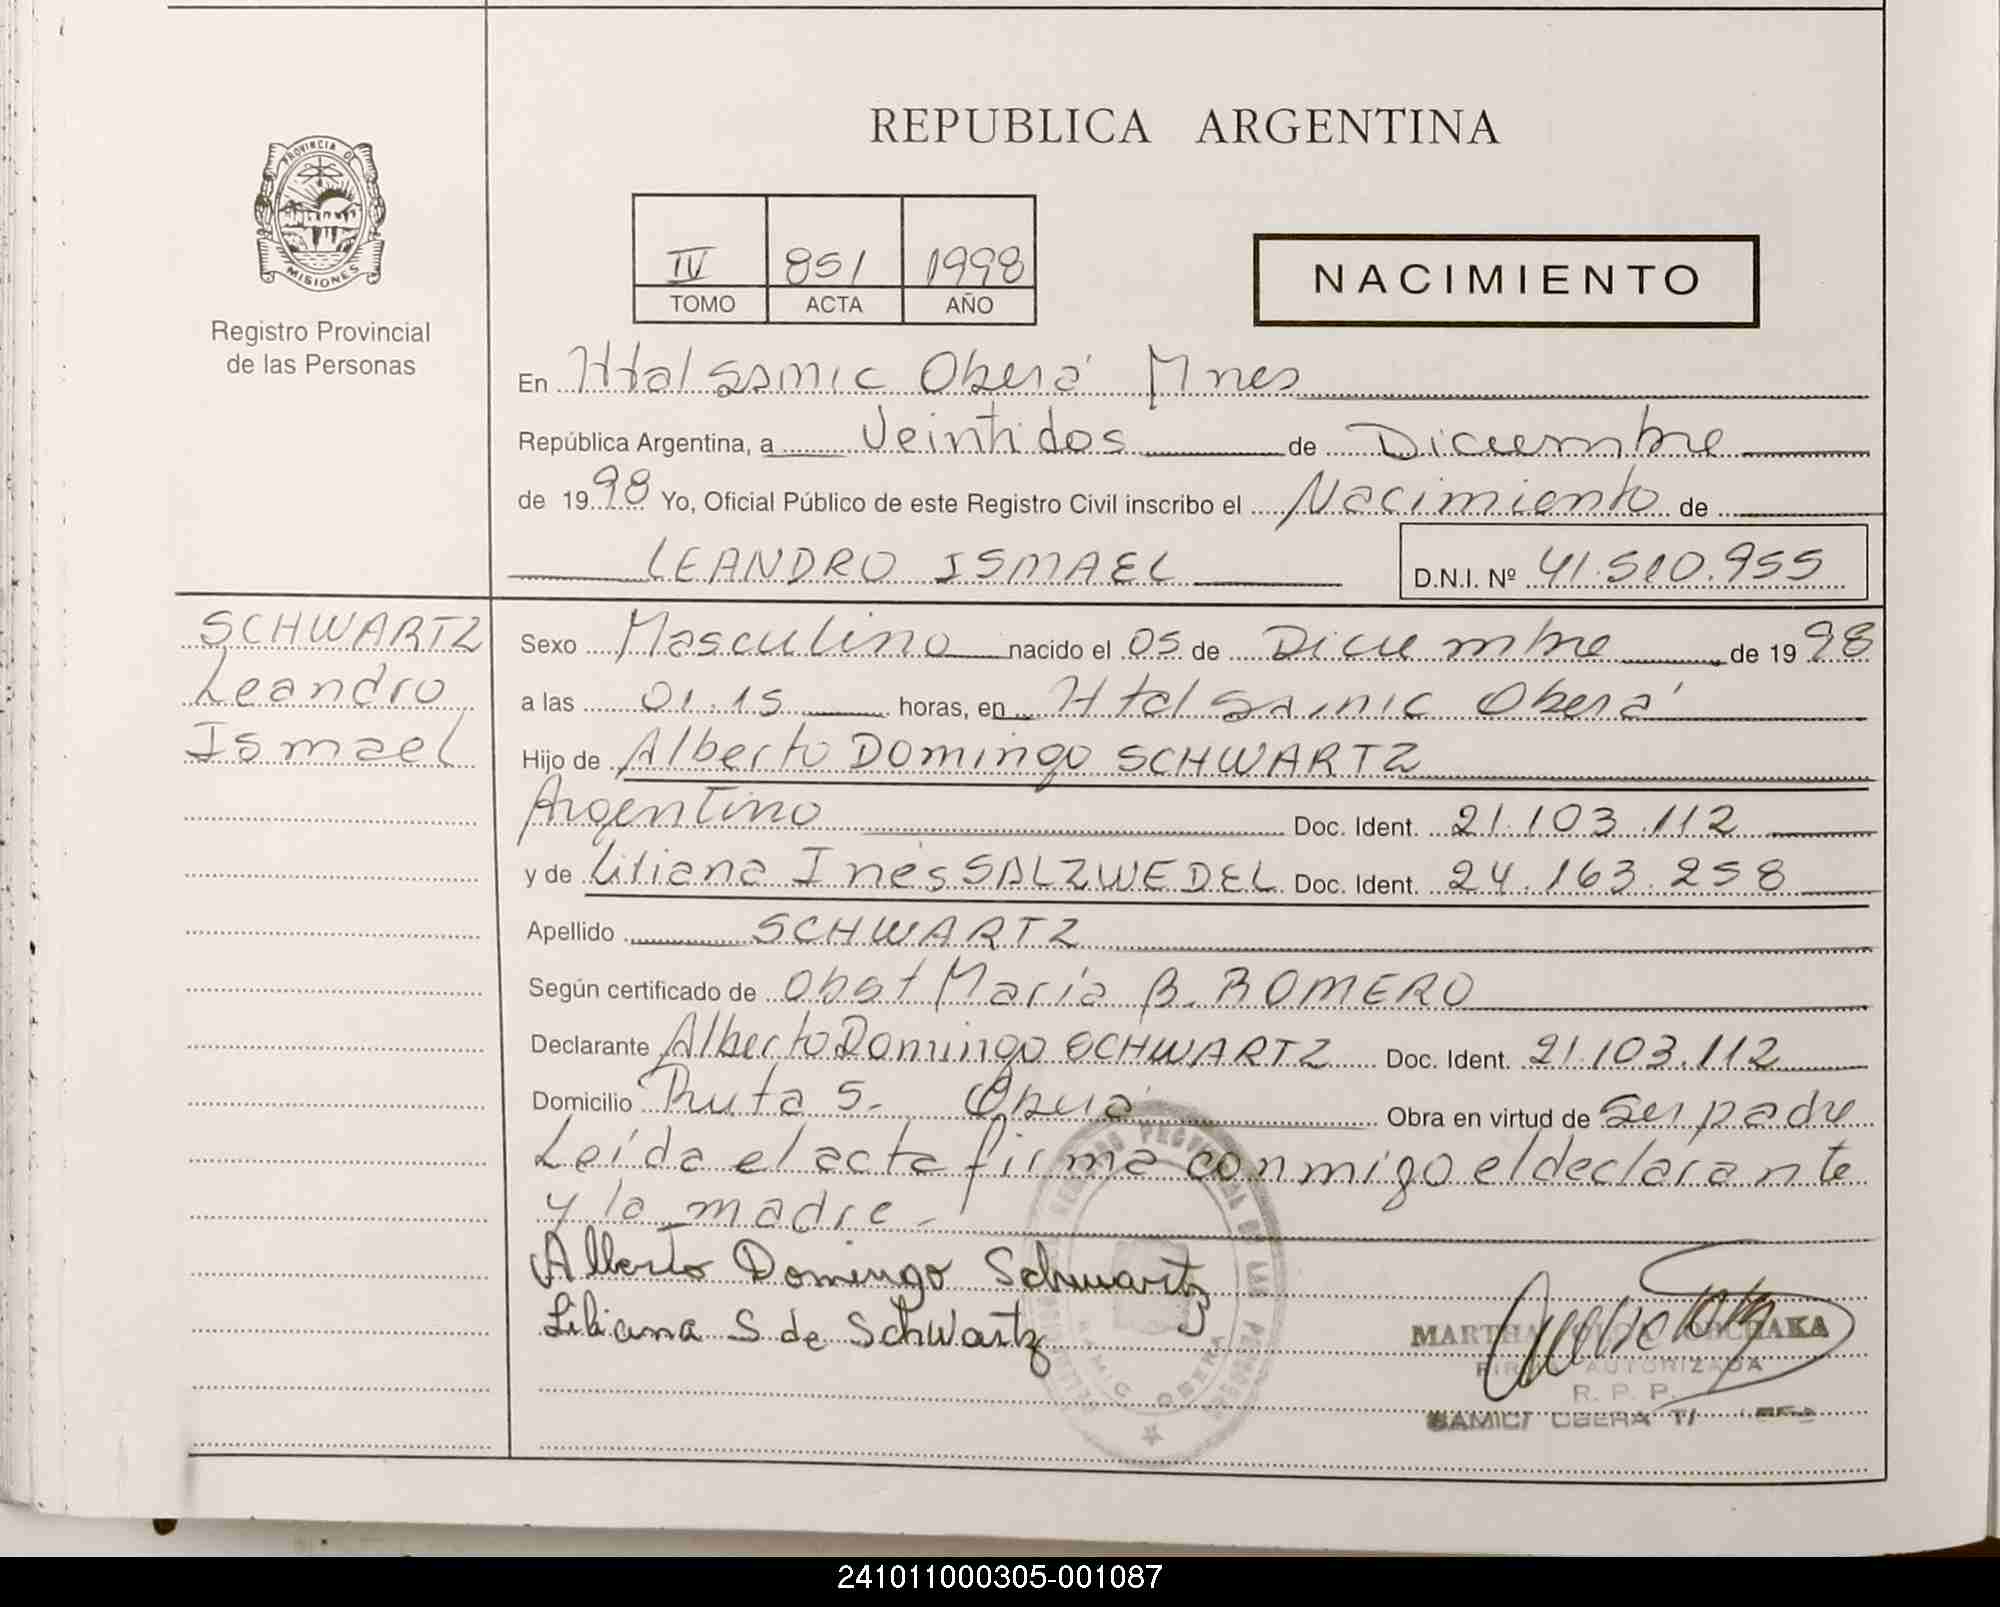 REPUBLICA ARGENTINA
PROVINCIA DE
MISIONES
Registro Provincial
de las Personas
IV 851 1998
TOMO ACTA AÑO
NACIMIENTO
En Htal Samic Oberá Mnes
República Argentina, a Veintidos de Diciembre
de 1998 Yo, Oficial Público de este Registro Civil inscribo el Nacimiento de
LEANDRO ISMAEL D.N.I. Nº 41.510.955
SCHWARTZ
Leandro
Ismael
Sexo Masculino nacido el 05 de Diciembre de 1998
a las 01.15 horas, en Htal Samic Oberá
Hijo de Alberto Domingo SCHWARTZ
Argentino Doc. Ident. 21.103.112
y de Liliana Inés SALZWEDEL Doc. Ident. 24.163.258
Apellido SCHWARTZ
Según certificado de Obst María B. ROMERO
Declarante Alberto Domingo SCHWARTZ Doc. Ident. 21.103.112
Domicilio Ruta 5. Oberá Obra en virtud de ser padre
Leída el acta firma conmigo el declarante
y la madre.
Alberto Domingo Schwartz
Liliana S de Schwartz
MARTHA
FIRMA AUTORIZADA
R. P. P.
SAMIC OBERA
241011000305-001087